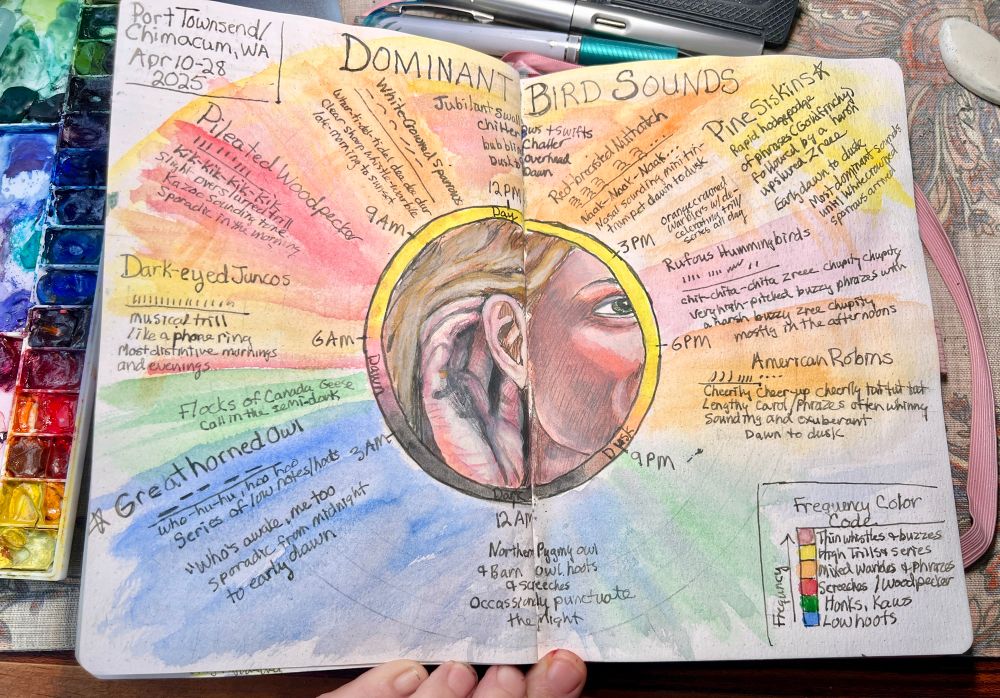 Port Townsend/
Chimacum, WA
Apr 10-28
2025
DOMINANT BIRD SOUNDS
Pileated Woodpecker
kik-kik-kik-kik
slight overstarna trill
Kazoo sounding tone
sporadic in the morning
White Crowned Sparrows
Clear sharp whistle-warble
late-morning to sunset
Jubilant swallows + swifts
chitter chatter
bubbling overhead
Dusk to Dawn
Red breasted Nuthatch
Naak-Naak-Naak...
Nasal sounding, mini tin
trumpet dawn to dusk
Pine Siskins
Rapid hodgepodge
of phrases (Goldfinchy)
Followed by a harsh
upslurred Zreee
Early dawn to dusk
Most dominant sounds
until white crowned
sparrows arrived
orange crowned
Warblers w/ de-
celerating trill
series all day
Rufous Hummingbirds
chit-chita-chita zreee chupity chupity
very high-pitched buzzy phrases with
a harsh buzzy zree chupity
mostly in the afternoons
American Robins
Cheerily Cheer-up cheerily tut tut tut
Lengthy Carol/Phrases often whinny
sounding and exuberant
Dawn to dusk
Dark-eyed Juncos
musical trill
like a phone ring
Most distintive mornings
and evenings
Flocks of Canada Geese
Call in the semi-dark
Great horned Owl
who-hu-hu, hoo hoo
Series of low notes/hoots
"Who's awake, me too
sporadic from midnight
to early dawn
12PM
Day
9AM
3PM
6AM
6PM
Dawn
Dusk
3AM
9PM
Dark
12AM
Northern Pygmy owl
+ Barn owl hoots
+ screeches
Occassionly punctuate
the night
Frequency Color
Code
Frequncy
Thin whistles & buzzes
High Trills & series
Mixed Warbles & phrases
Screeches / Woodpecker
Honks, Kaws
Low hoots